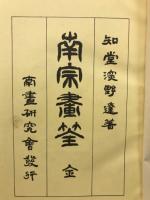 知堂濱野達著
南宗畫筌 金
南畫研究會發行